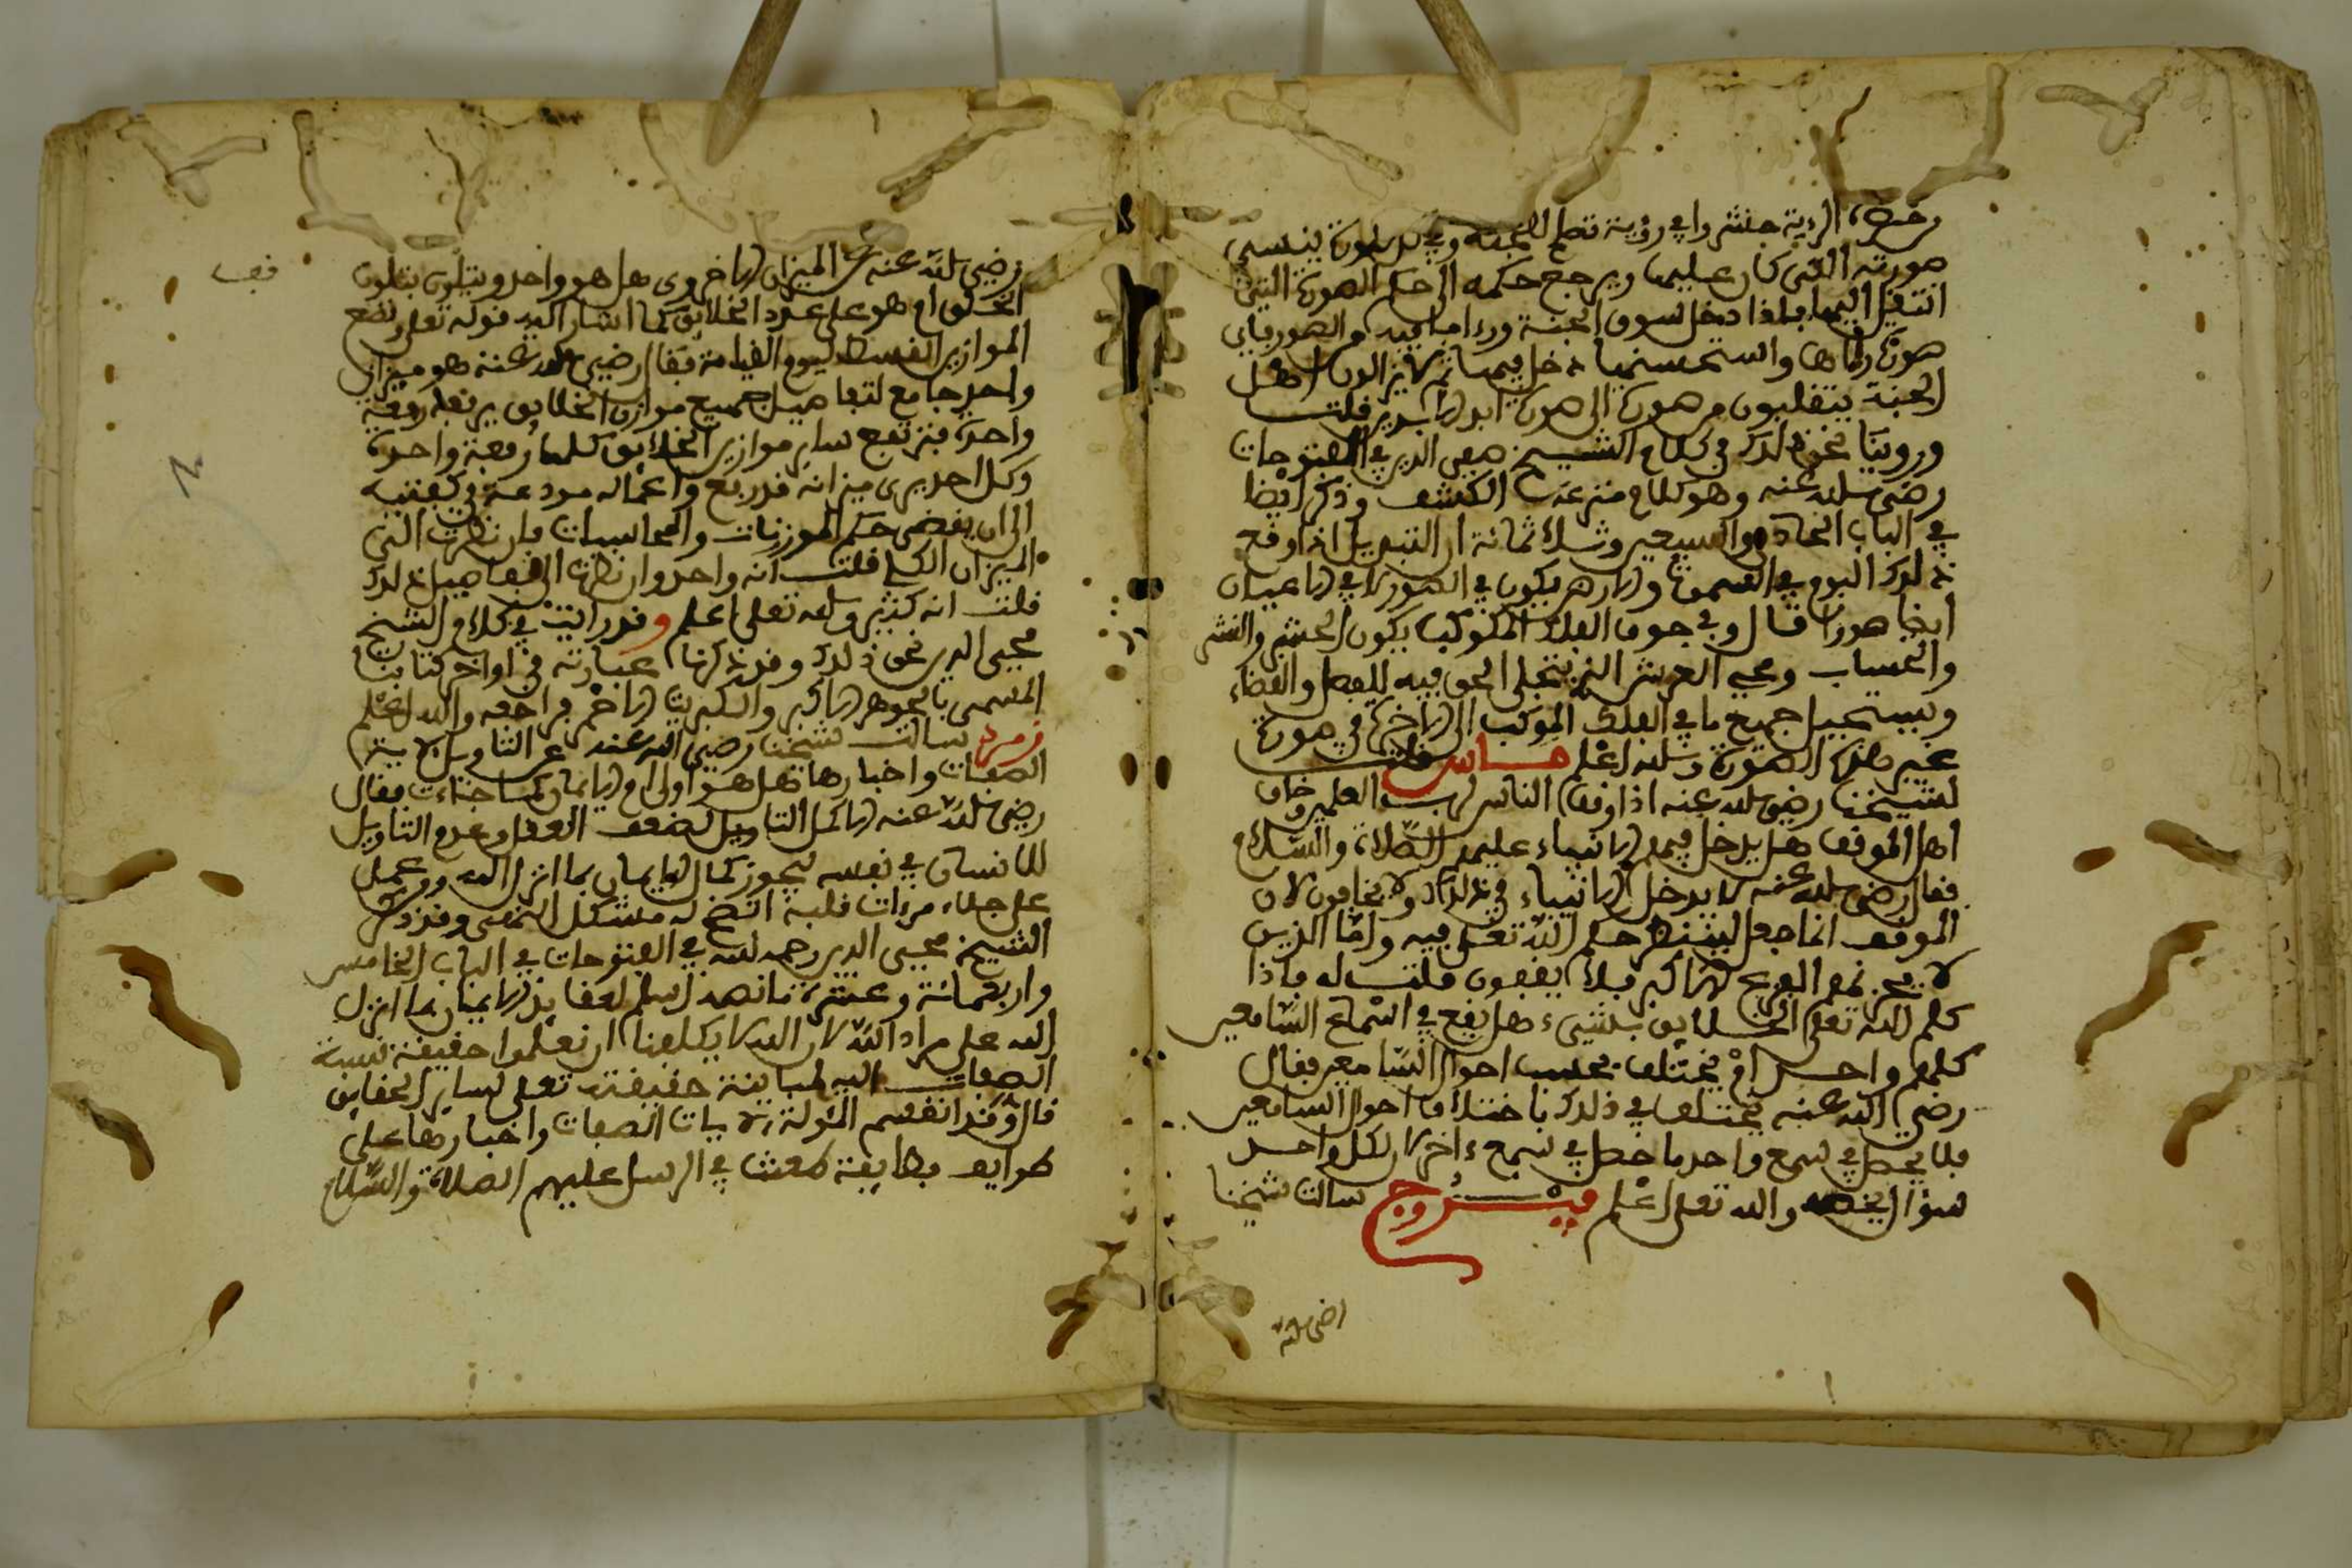 صورته التي كان عليها ويرجع حكمه الى حكم الصورة التي
انتقل اليها فاذا دخل سوق الجنة ورءا ما فيه من الصور فاي
صورة رءاها واستحسنها دخل فيها ثم لا يزالون اهل
الجنة يتقلبون من صورة الى صورة ابد الابدين قلت
وروينا نحو ذلك في كلام الشيخ محي الدين في الفتوحات
رضي الله عنه وهو كلام منزعه الكشف وذكر ايضا
في الباب الحادي والسبعين وثلاثمائة ان التبديل اذا وقع
ذلك اليوم في السموات والارض يكون في الصور لا في الاعيان
ايضا صورا قال وفي جوف الفلك المكوكب يكون الحشر والنشر
والحساب ومحي العرش الذي يتجلى الحق فيه للفصل والقضاء
ويستحيل جميع ما في الفلك الموكب الى الاخرة في صورة
غير هذه الصورة والله اعلم ماس قلت
لشيخنا رضي الله عنه اذا وقف الناس لرب العلمين وخاف
اهل الموقف هل يدخل فيهم الانبياء عليهم الصلاة والسلام
فقال رضي الله عنه لا يدخل الانبياء في ذلك ولا يخافون لان
الموقف انما جعل لينتظر حكم الله تعلى فيه واما الذين
لا يحزنهم الفزع الاكبر فلا يقفون قلت له فاذا
كلم الله تعلى الخلايق بشيء هل يقع في اسماع السامعين
كلهم واحد او يختلف بحسب احوال السامعين فقال
رضي الله عنه يختلف في ذلك باختلاف احوال السامعين
فلا يحصل في سمع واحد ما حصل في سمع ءاخر لان لكل واحد
سؤال يخصه والله تعلى اعلم فيروزج سالت شيخنا
رضي الله
رضي الله عنه عن الميزان الاخروي هل هو واحد ويتلون بتلون
الخلق ام هو على عدد الخلايق كما اشار اليه قوله تعلى ونضع
الموازين القسط ليوم القيامة فقال رضي الله عنه هو ميزان
واحد جامع لتفاصيل جميع موازن الخلايق يرفعه رفعة
واحدة فترتفع ساير موازين الخلايق كلها رفعة واحدة
وكل احد يرى ميزانه قد ربع واعماله مودعة في كفتيه
الى ان يقضى حكم الموزنات والمحاسبات فان نظرت الى
الميزان الكلي قلت انه واحد وان نظرت الى تفاصيل ذلك
قلت انه كثير والله تعلى اعلم وقد رايت في كلام الشيخ
محيي الدين نحو ذلك وقد ذكرنا عبارته في اواخر كتابنا
المسمى بالجوهر الاكبر والكبريت الاحمر فراجعه والله اعلم
زمرد سالت شيخنا رضي الله عنه عن التاويل لاية
الصفات واخبارها هل هو اولى ام الايمان كما جاءت فقال
رضي الله عنه الاكمل التاويل لضعف العقل وعدم التاويل
للانسان في نفسه ليحوز كمال الايمان بما انزل الله ومن عمل
على جلاء مرءات قلبه اتضح له مشكل النصى وقد ذكر
الشيخ محيي الدين رحمه الله في الفتوحات في الباب الخامس
واربعمائة وعشرة ما نصه اسلم العقايد الايمان بما انزل
الله على مراد الله لان الله لا يكلفنا ان نعلموا حقيقة نسبة
الصفات اليه لمباينة حقيقته تعلى لساير الحقايق
قال وقد انقسم المؤولة لايات الصفات واخبارها على
طوايف بطايفة طعنت في الرسل عليهم الصلاة والسلام
قف